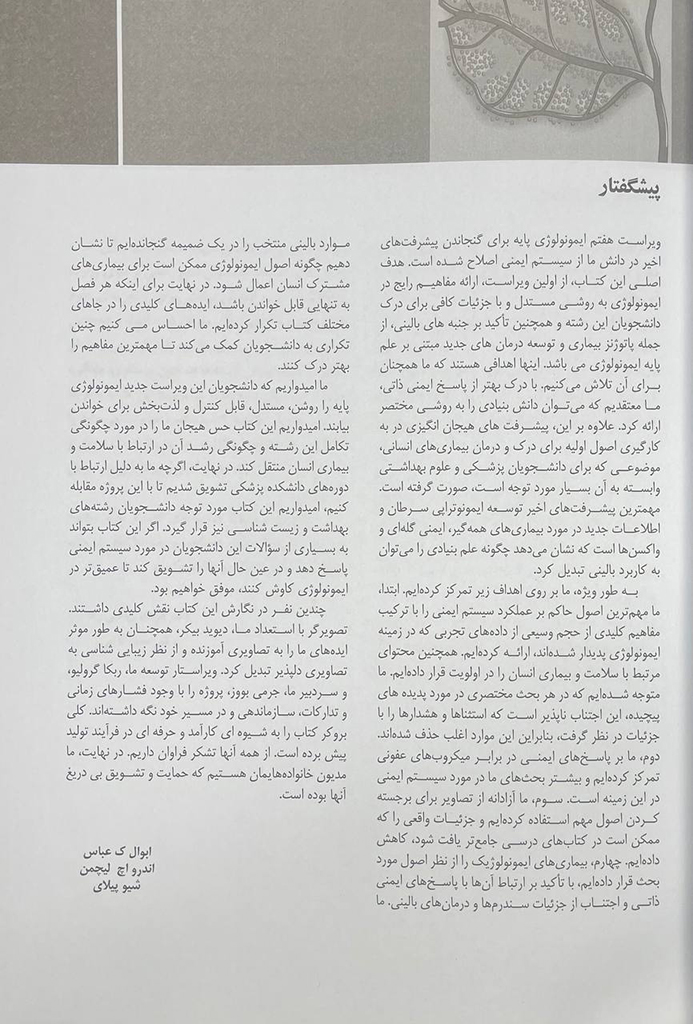 پیشگفتار
ویراست هفتم ایمونولوژی پایه برای گنجاندن پیشرفت‌های
اخیر در دانش ما از سیستم ایمنی اصلاح شده است. هدف
اصلی این کتاب، از اولین ویراست، ارائه مفاهیم رایج در
ایمونولوژی به روشی مستدل و با جزئیات کافی برای درک
دانشجویان این رشته و همچنین تأکید بر جنبه های بالینی، از
جمله پاتوژنز بیماری و توسعه درمان های جدید مبتنی بر علم
پایه ایمونولوژی می باشد. اینها اهدافی هستند که ما همچنان
برای آن تلاش می‌کنیم. با درک بهتر از پاسخ ایمنی ذاتی،
ما معتقدیم که می‌توان دانش بنیادی را به روشی مختصر
ارائه کرد. علاوه بر این، پیشرفت های هیجان انگیزی در به
کارگیری اصول اولیه برای درک و درمان بیماری‌های انسانی،
موضوعی که برای دانشجویان پزشکی و علوم بهداشتی
وابسته به آن بسیار مورد توجه است، صورت گرفته است.
مهمترین پیشرفت‌های اخیر توسعه ایمونوتراپی سرطان و
اطلاعات جدید در مورد بیماری‌های همه‌گیر، ایمنی گله‌ای و
واکسن‌ها است که نشان می‌دهد چگونه علم بنیادی را می‌توان
به کاربرد بالینی تبدیل کرد.
به طور ویژه، ما بر روی اهداف زیر تمرکز کرده‌ایم. ابتدا،
ما مهم‌ترین اصول حاکم بر عملکرد سیستم ایمنی را با ترکیب
مفاهیم کلیدی از حجم وسیعی از داده‌های تجربی که در زمینه
ایمونولوژی پدیدار شده‌اند، ارائه کرده‌ایم. همچنین محتوای
مرتبط با سلامت و بیماری انسان را در اولویت قرار داده‌ایم. ما
متوجه شده‌ایم که در هر بحث مختصری در مورد پدیده های
پیچیده، این اجتناب ناپذیر است که استثناها و هشدارها را با
جزئیات در نظر گرفت، بنابراین این موارد اغلب حذف شده‌اند.
دوم، ما بر پاسخ‌های ایمنی در برابر میکروب‌های عفونی
تمرکز کرده‌ایم و بیشتر بحث‌های ما در مورد سیستم ایمنی
در این زمینه است. سوم، ما آزادانه از تصاویر برای برجسته
کردن اصول مهم استفاده کرده‌ایم و جزئیات واقعی را که
ممکن است در کتاب‌های درسی جامع‌تر یافت شود، کاهش
داده‌ایم. چهارم، بیماری‌های ایمونولوژیک را از نظر اصول مورد
بحث قرار داده‌ایم، با تأکید بر ارتباط آن‌ها با پاسخ‌های ایمنی
ذاتی و اجتناب از جزئیات سندرم‌ها و درمان‌های بالینی. ما
موارد بالینی منتخب را در یک ضمیمه گنجانده‌ایم تا نشان
دهیم چگونه اصول ایمونولوژی ممکن است برای بیماری‌های
مشترک انسان اعمال شود. در نهایت برای اینکه هر فصل
به تنهایی قابل خواندن باشد، ایده‌های کلیدی را در جاهای
مختلف کتاب تکرار کرده‌ایم. ما احساس می کنیم چنین
تکراری به دانشجویان کمک می‌کند تا مهمترین مفاهیم را
بهتر درک کنند.
ما امیدواریم که دانشجویان این ویراست جدید ایمونولوژی
پایه را روشن، مستدل، قابل کنترل و لذت‌بخش برای خواندن
بیابند. امیدواریم این کتاب حس هیجان ما را در مورد چگونگی
تکامل این رشته و چگونگی رشد آن در ارتباط با سلامت و
بیماری انسان منتقل کند. در نهایت، اگرچه ما به دلیل ارتباط با
دوره‌های دانشکده پزشکی تشویق شدیم تا با این پروژه مقابله
کنیم، امیدواریم این کتاب مورد توجه دانشجویان رشته‌های
بهداشت و زیست شناسی نیز قرار گیرد. اگر این کتاب بتواند
به بسیاری از سؤالات این دانشجویان در مورد سیستم ایمنی
پاسخ دهد و در عین حال آنها را تشویق کند تا عمیق‌تر در
ایمونولوژی کاوش کنند، موفق خواهیم بود.
چندین نفر در نگارش این کتاب نقش کلیدی داشتند.
تصویرگر با استعداد ما، دیوید بیکر، همچنان به طور موثر
ایده‌های ما را به تصاویری آموزنده و از نظر زیبایی شناسی به
تصاویری دلپذیر تبدیل کرد. ویراستار توسعه ما، ربکا گرولیو،
و سردبیر ما، جرمی بووز، پروژه را با وجود فشارهای زمانی
و تدارکات، سازماندهی و در مسیر خود نگه داشته‌اند. کلی
بروکر کتاب را به شیوه ای کارآمد و حرفه ای در فرآیند تولید
پیش برده است. از همه آنها تشکر فراوان داریم. در نهایت، ما
مدیون خانواده‌هایمان هستیم که حمایت و تشویق بی دریغ
آنها بوده است.
ابوال ک عباس
اندرو اچ لیچمن
شیو پیلای